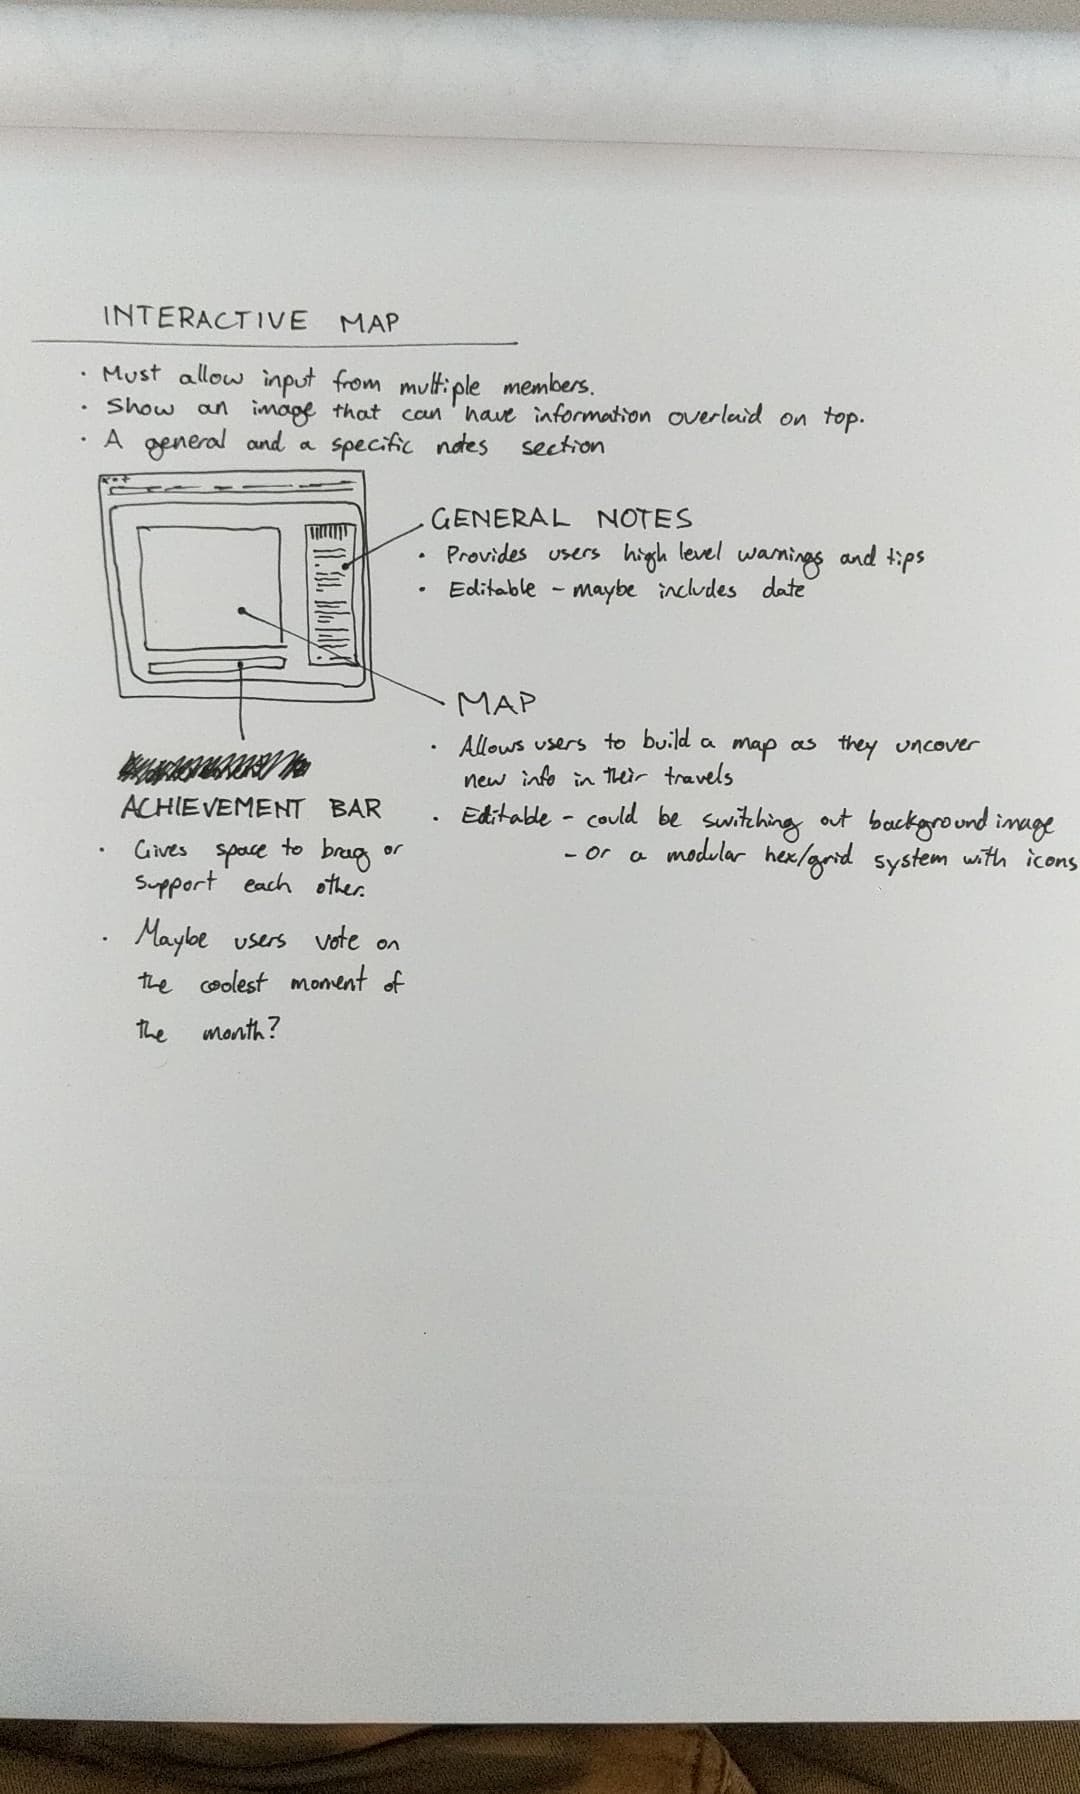 INTERACTIVE MAP
· Must allow input from multiple members.
· Show an image that can have information overlaid on top.
· A general and a specific notes section
GENERAL NOTES
· Provides users high level warnings and tips
· Editable - maybe includes date
MAP
· Allows users to build a map as they uncover
new info in their travels
· Editable - could be switching out background image
- or a modular hex/grid system with icons
ACHIEVEMENT BAR
· Gives space to brag or
support each other.
· Maybe users vote on
the coolest moment of
the month?